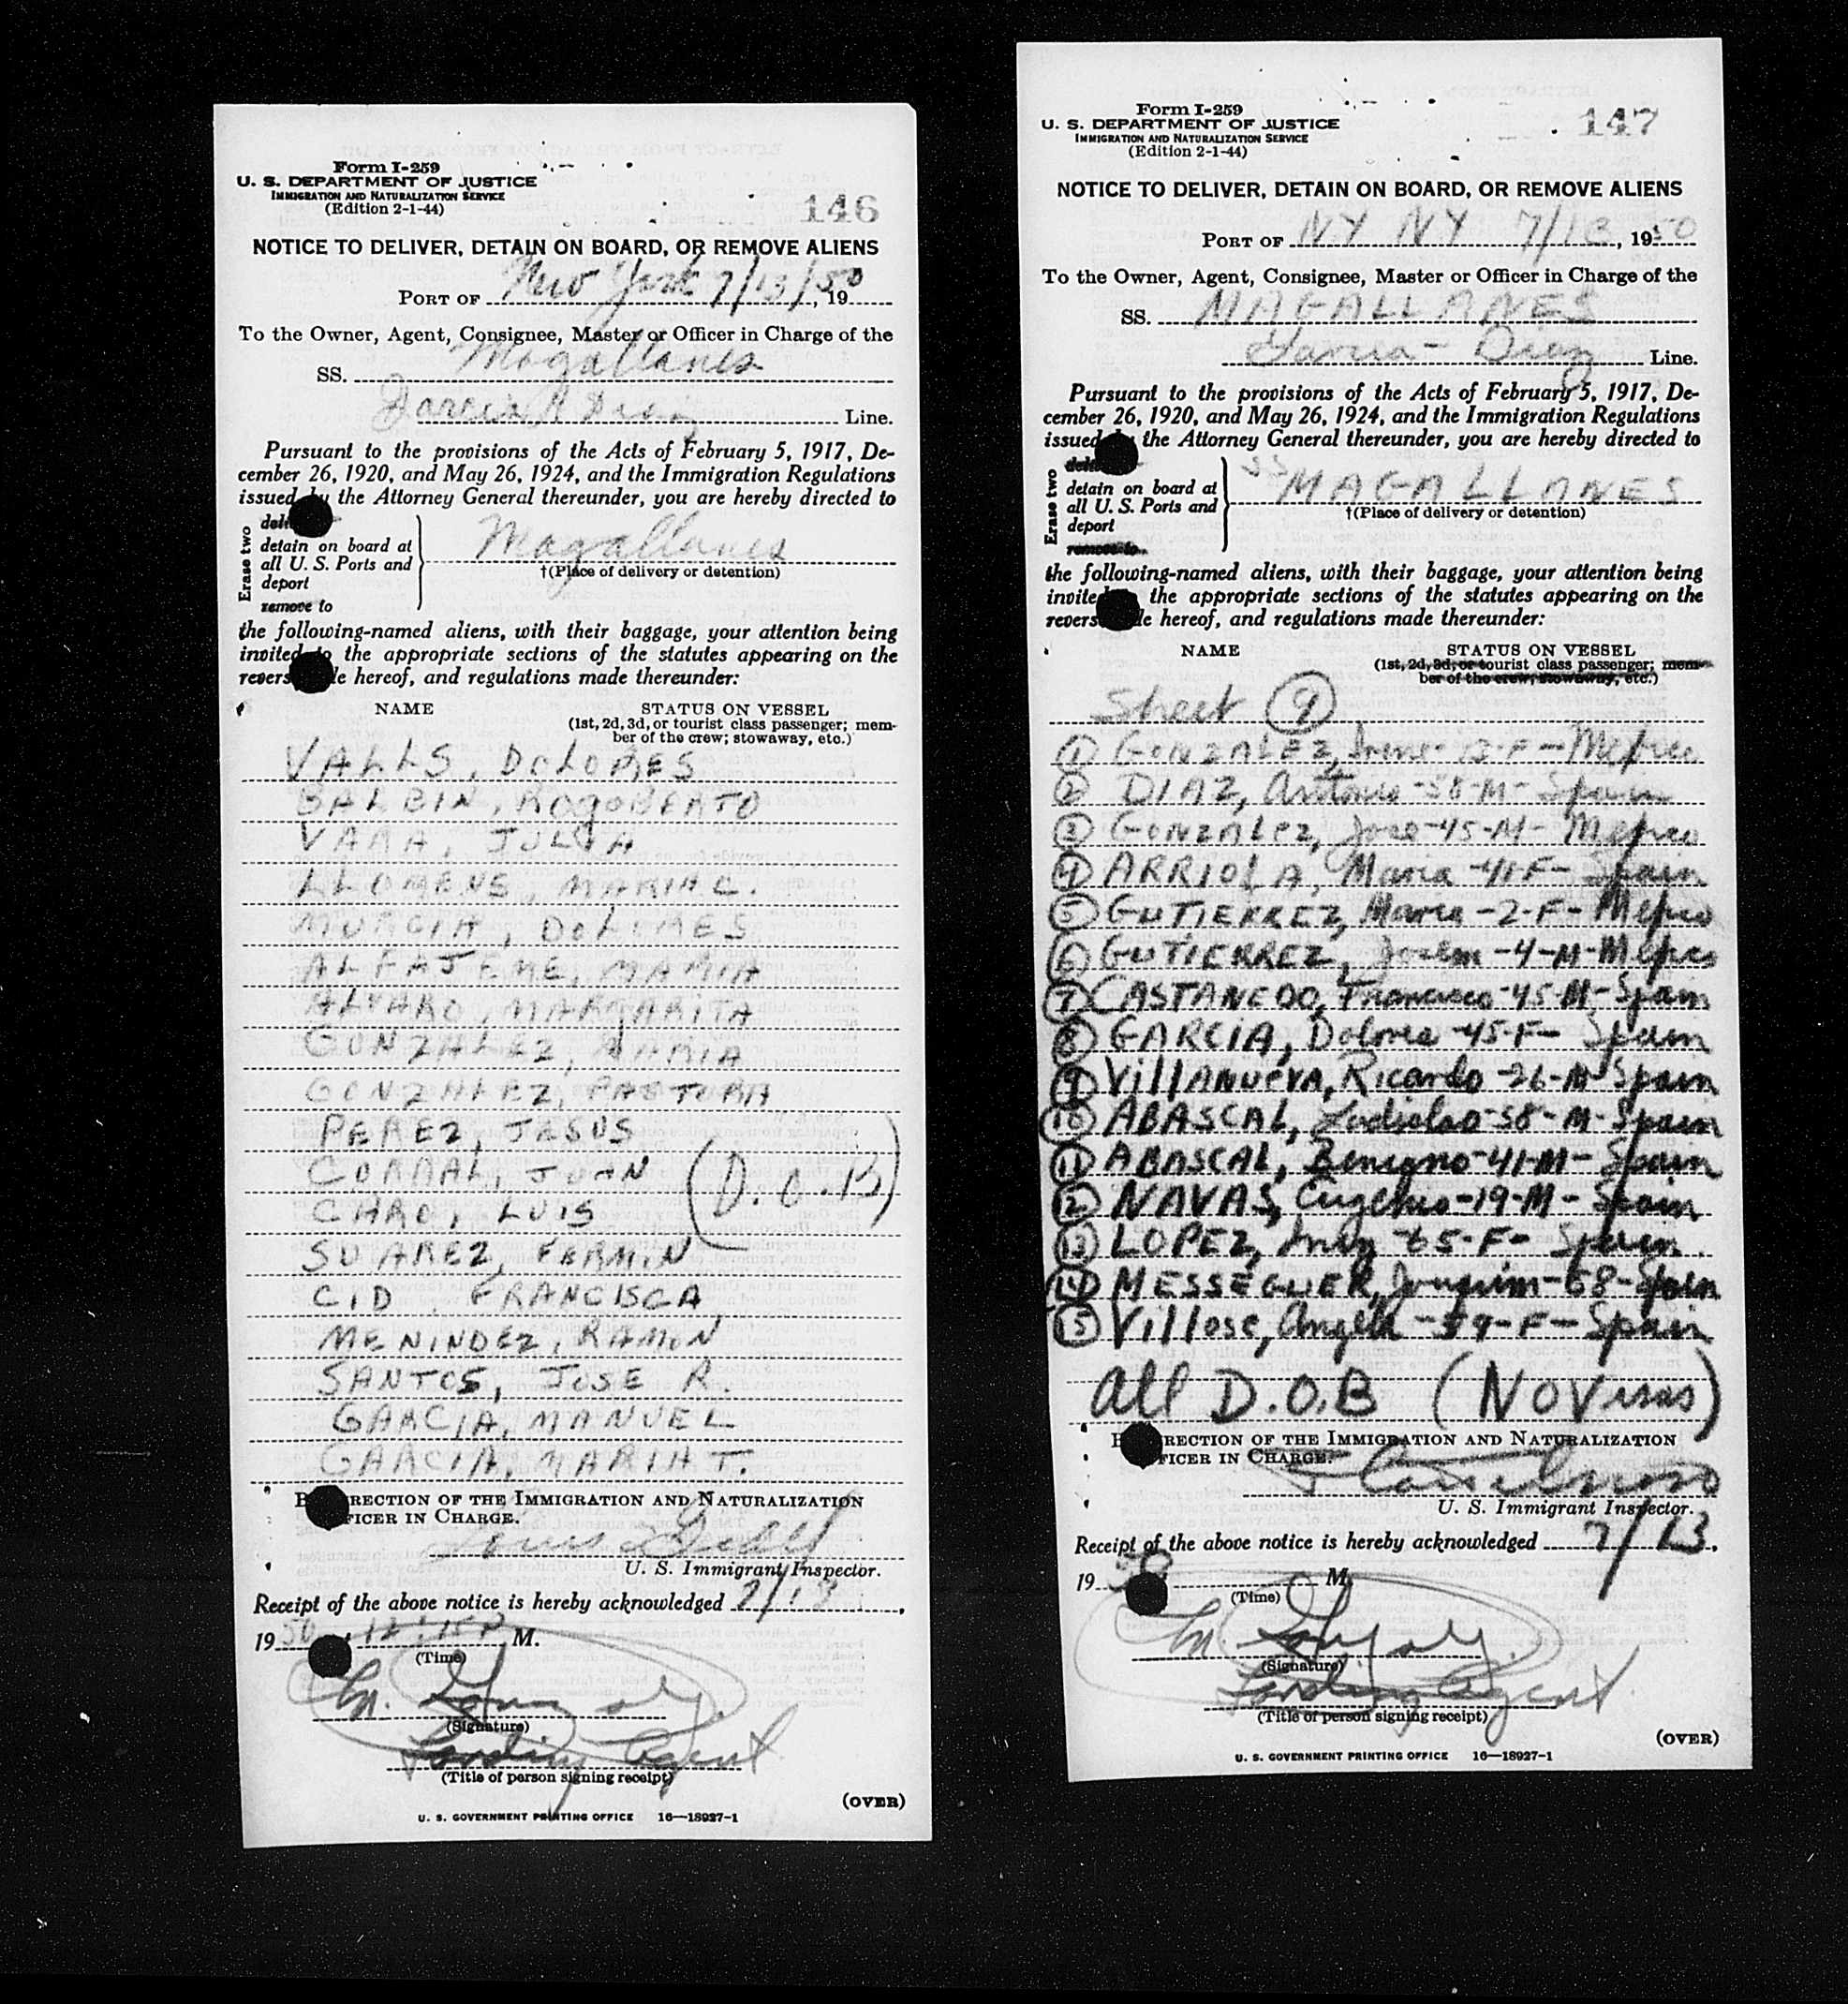 Form I-259
U. S. DEPARTMENT OF JUSTICE
IMMIGRATION AND NATURALIZATION SERVICE
(Edition 2-1-44)
146
NOTICE TO DELIVER, DETAIN ON BOARD, OR REMOVE ALIENS
PORT OF New York 7/13/50, 19
To the Owner, Agent, Consignee, Master or Officer in Charge of the
SS. Magallanes
Garcia & Diaz Line.
Pursuant to the provisions of the Acts of February 5, 1917, De-
cember 26, 1920, and May 26, 1924, and the Immigration Regulations
issued by the Attorney General thereunder, you are hereby directed to
Erase two
detain on board at
all U. S. Ports and
deport
remove to
Magallanes
†(Place of delivery or detention)
the following-named aliens, with their baggage, your attention being
invited to the appropriate sections of the statutes appearing on the
revers le hereof, and regulations made thereunder:
NAME STATUS ON VESSEL
(1st, 2d, 3d, or tourist class passenger; mem-
ber of the crew; stowaway, etc.)
VALLS, DOLORES
BALBIN, ROGOBERTO
VARA, JULIA
LLORENS, MARIA C.
MURCIA, DOLORES
ALFAJEME, MARIA
ALVARO, MARGARITA
GONZALEZ, MARIA
GONZALEZ, PASTORA
PEREZ, JESUS
CORRAL, JUAN (D.O.B)
CHAO, LUIS
SUAREZ, FERMIN
CID, FRANCISCA
MENINDEZ, RAMON
SANTOS, JOSE R.
GARCIA, MANUEL
GARCIA, MARIA T.
B RECTION OF THE IMMIGRATION AND NATURALIZATION
FICER IN CHARGE.
Louis
U. S. Immigrant Inspector.
Receipt of the above notice is hereby acknowledged 7/13,
19 50, 12:15 P M.
(Time)
M. Gonzalez
(Signature)
Landing Agent
(Title of person signing receipt)
(OVER)
U. S. GOVERNMENT PRINTING OFFICE 16—18927-1
Form I-259
U. S. DEPARTMENT OF JUSTICE
IMMIGRATION AND NATURALIZATION SERVICE
(Edition 2-1-44)
147
NOTICE TO DELIVER, DETAIN ON BOARD, OR REMOVE ALIENS
PORT OF NY NY 7/13, 1950
To the Owner, Agent, Consignee, Master or Officer in Charge of the
SS. MAGALLANES
Garcia - Diaz Line.
Pursuant to the provisions of the Acts of February 5, 1917, De-
cember 26, 1920, and May 26, 1924, and the Immigration Regulations
issued the Attorney General thereunder, you are hereby directed to
Erase two
detain on board at
all U. S. Ports and
deport
remove to
SS MAGALLANES
†(Place of delivery or detention)
the following-named aliens, with their baggage, your attention being
invite the appropriate sections of the statutes appearing on the
revers le hereof, and regulations made thereunder:
NAME STATUS ON VESSEL
(1st, 2d, 3d, or tourist class passenger; mem-
ber of the crew; stowaway, etc.)
Sheet 9
1 GONZALEZ, Irene - 12-F - Mexico
2 DIAZ, Antonio - 58-M - Spain
3 GONZALEZ, Jose - 45-M - Mexico
4 ARRIOLA, Maria - 41-F - Spain
5 GUTIERREZ, Maria - 2-F - Mexico
6 GUTIERREZ, - 4-M - Mexico
7 CASTANEDO, Francisco - 45-M - Spain
8 GARCIA, Dolores - 45-F - Spain
9 VILLANUEVA, Ricardo - 26-M - Spain
10 ABASCAL, Ladislao - 58-M - Spain
11 ABASCAL, Benigno - 41-M - Spain
12 NAVAS, Eugenio - 19-M - Spain
13 LOPEZ, - 65-F - Spain
14 MESSEGUER, Joaquim - 68 - Spain
15 Villose, Angela - 59-F - Spain
All D.O.B (NO Visas)
B RECTION OF THE IMMIGRATION AND NATURALIZATION
FICER IN CHARGE.
U. S. Immigrant Inspector.
Receipt of the above notice is hereby acknowledged 7/13,
19 50 M.
(Time)
M. Gonzalez
(Signature)
Landing Agent
(Title of person signing receipt)
(OVER)
U. S. GOVERNMENT PRINTING OFFICE 16—18927-1